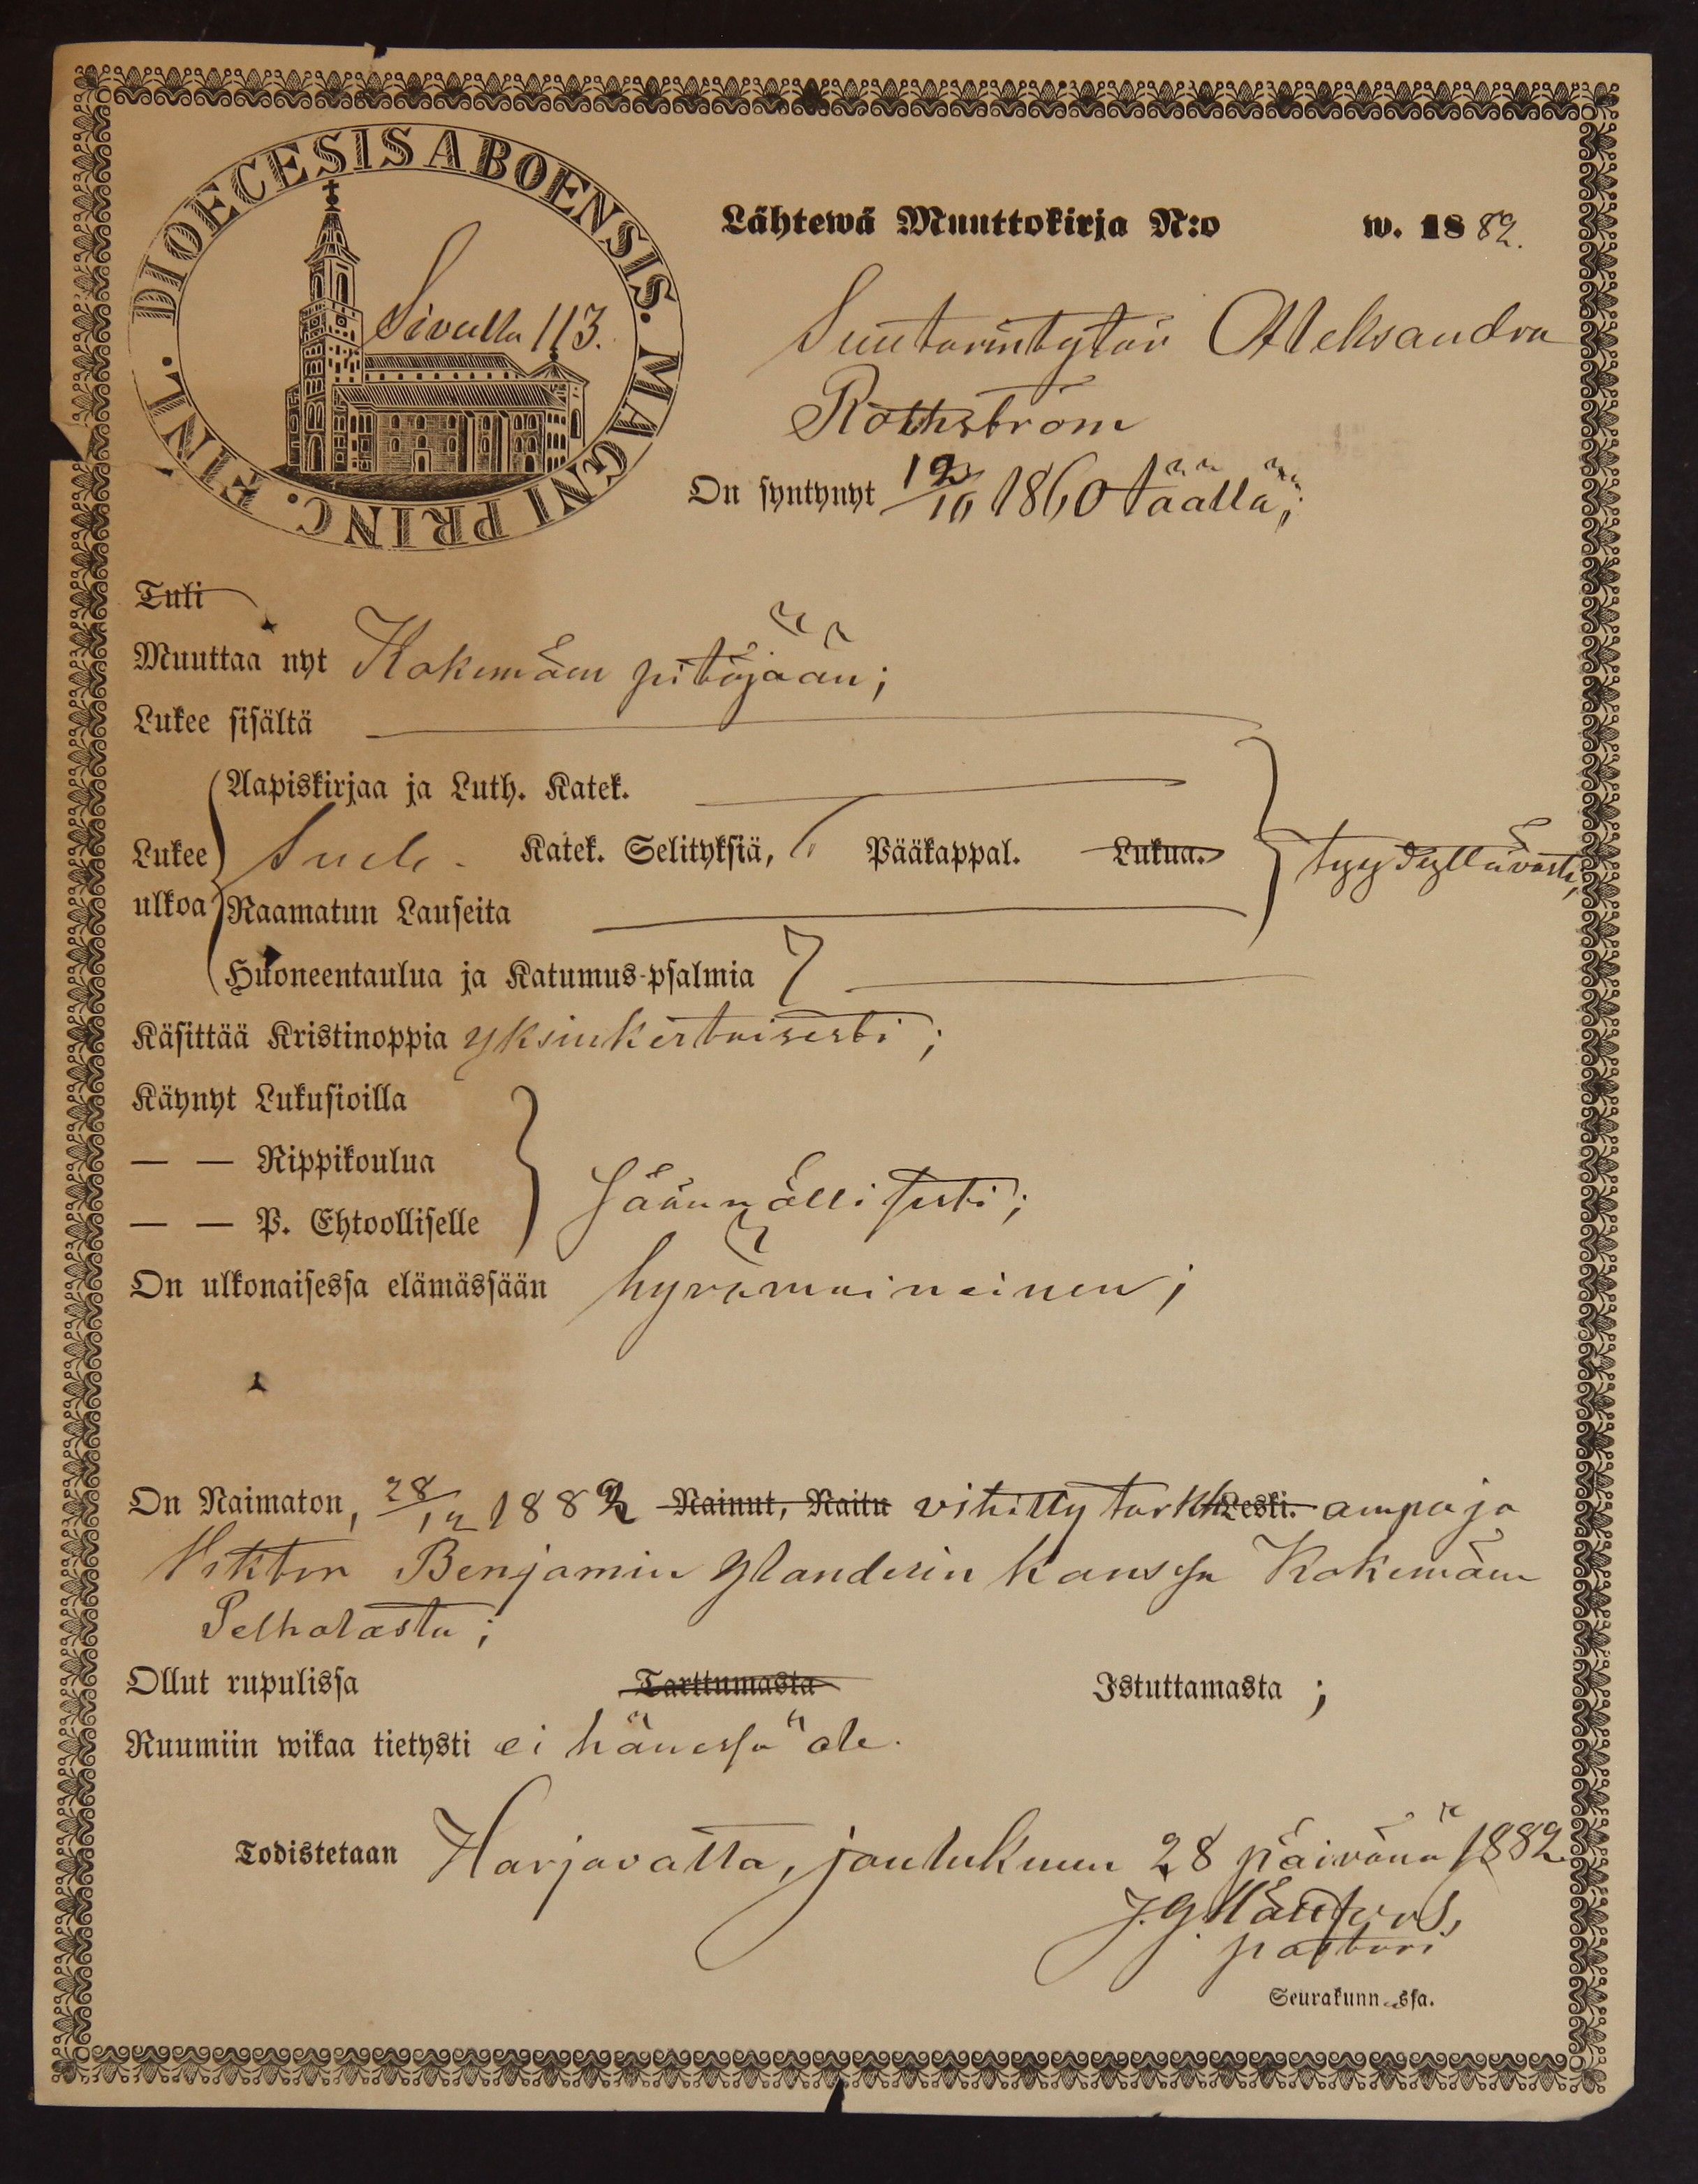 DIOECESIS ABOENSIS. MAGNI PRINC. FINL.
Sivulla 113.
Lähtewä Muuttokirja N:o w. 1882.
Suutarintytär Aleksandra
Rothström
On syntynyt 12/10 1860 täällä;
Tuli
Muuttaa nyt Kokemäen pitäjään;
Lukee sisältä
Aapiskirjaa ja Luth. Katek.
Lukee ulkoa
Katek. Selityksiä, Pääkappal. Lukua.
tyydyttävästi,
Raamatun Lauseita
Huoneentaulua ja Katumus-psalmia
Käsittää Kristinoppia yksinkertaisesti;
Käynyt Lukusioilla
— — Rippikoulua
— — P. Ehtoolliselle
säännöllisesti;
On ulkonaisessa elämässään hyvämaineinen;
On Naimaton, 28/12 1882 Nainut, Naitu vihitty tarkk Leski. ampuja
Viktor Benjamin Glanderin kanssa Kokemäen
Pelholasta;
Ollut rupulissa Tarttumasta Istuttamasta;
Ruumiin wikaa tietysti ei hänessä ole.
Todistetaan Harjavalta, joulukuun 28 päivänä 1882.
pastori
Seurakunn ssa.